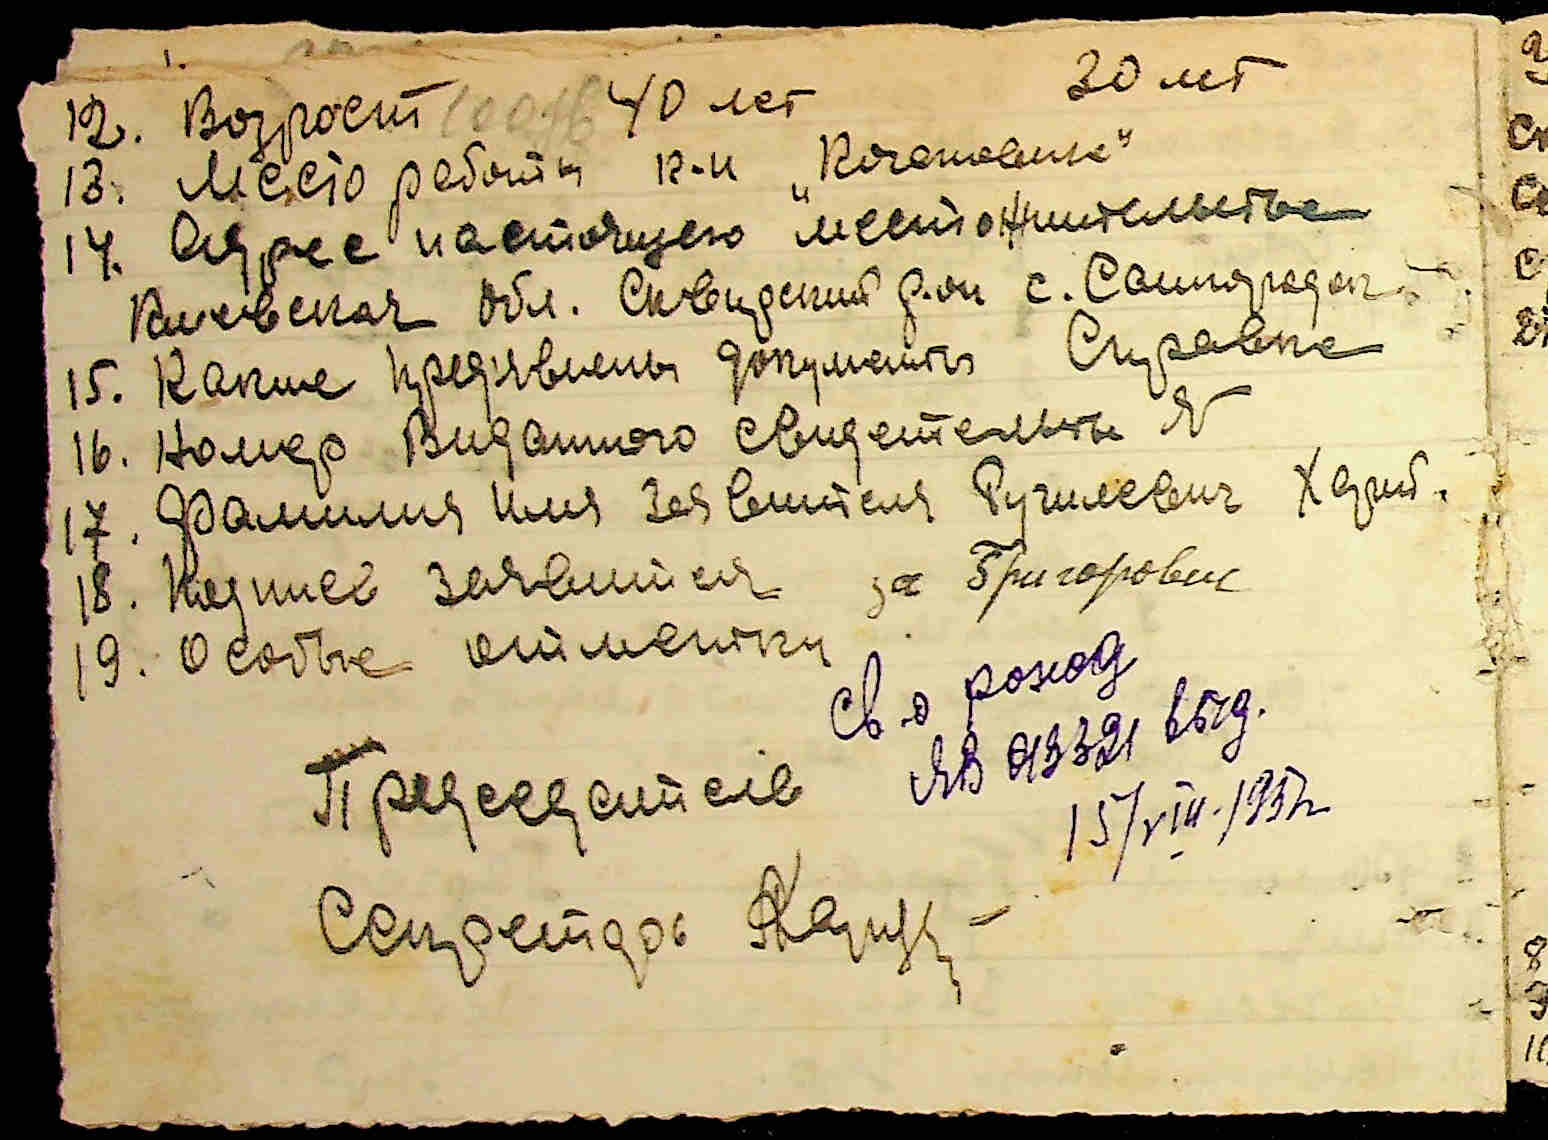 12. Возрост 40 лет 30 лет
13. Место работы к-п
14. Адрес настоящего местожительства
Киевская обл. Сквирский р-он с. Самгородок
15. Какие предявлены документы Справка
16. Номер виданного свидетельства №
17. Фамилия имя заявителя Харит.
18. Подпись заявителя за Григорович
19. Особые отметки
Св. о рожд
ЯВ 013321 выд.
15/VIII.
Председатель
Секретарь